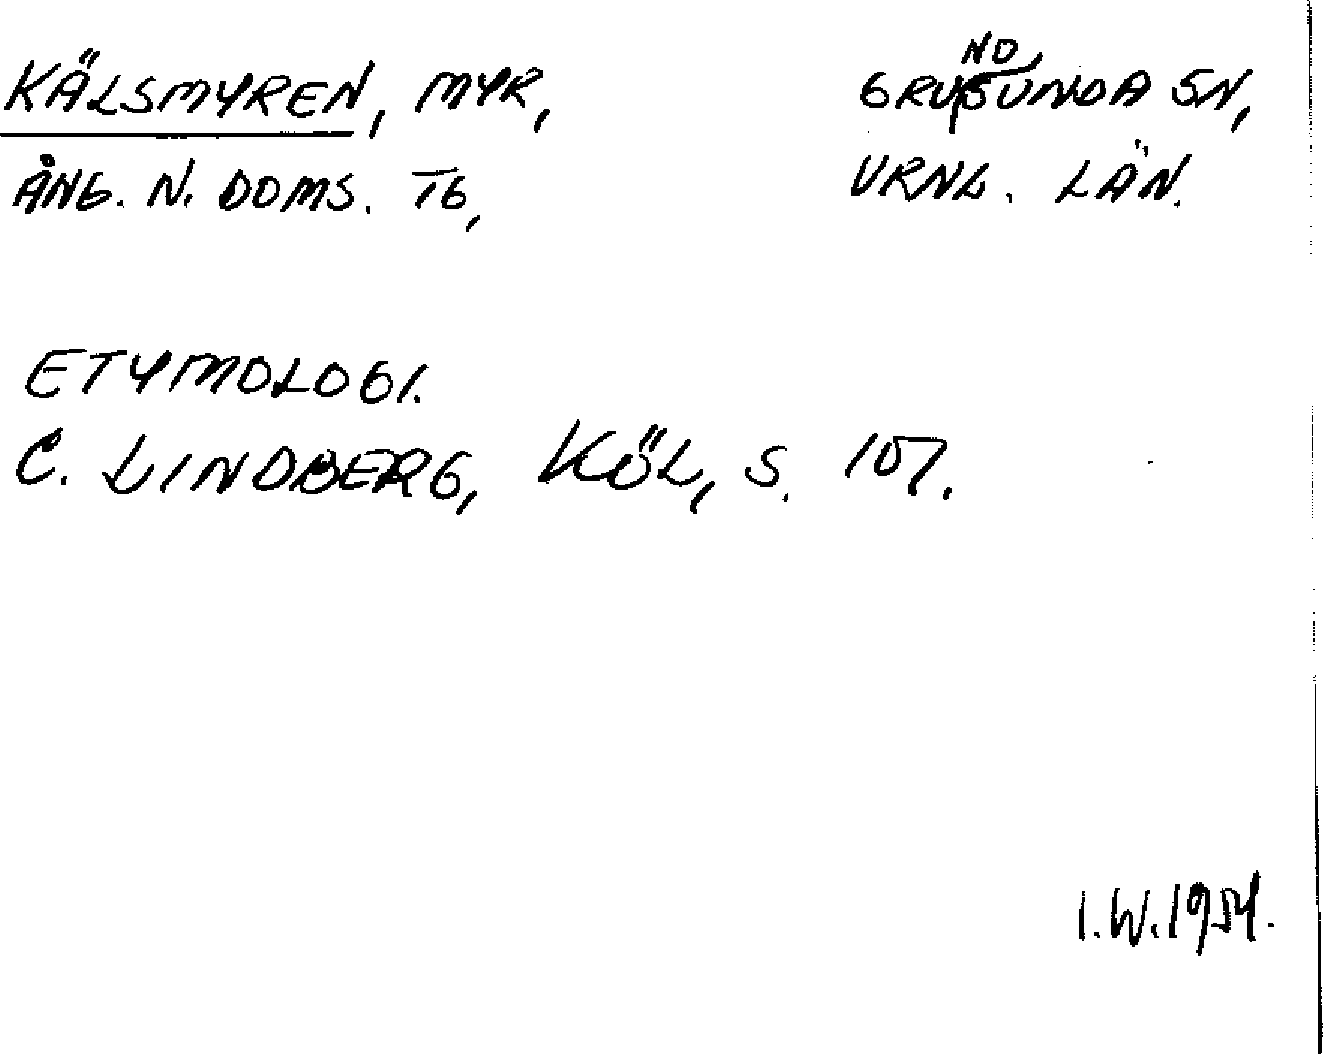 KÄLSMYREN, MYR, GRUNDSUNDA SN,
ÅNG. N. DOMS. TG, VRNL. LÄN.
ETYMOLOGI.
C. LINDBERG, KÖL, S. 107.
I.W.1954.